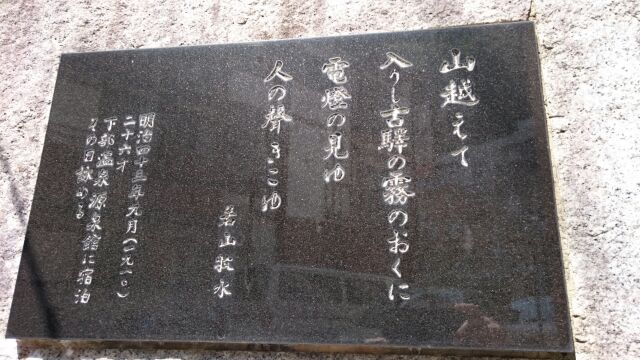 山越えて
入りし古驛の霧のおくに
電燈の見ゆ
人の聲きこゆ
若山牧水
明治四十三年九月(一九一〇)
二十六才
下部温泉源泉館に宿泊
その日詠める